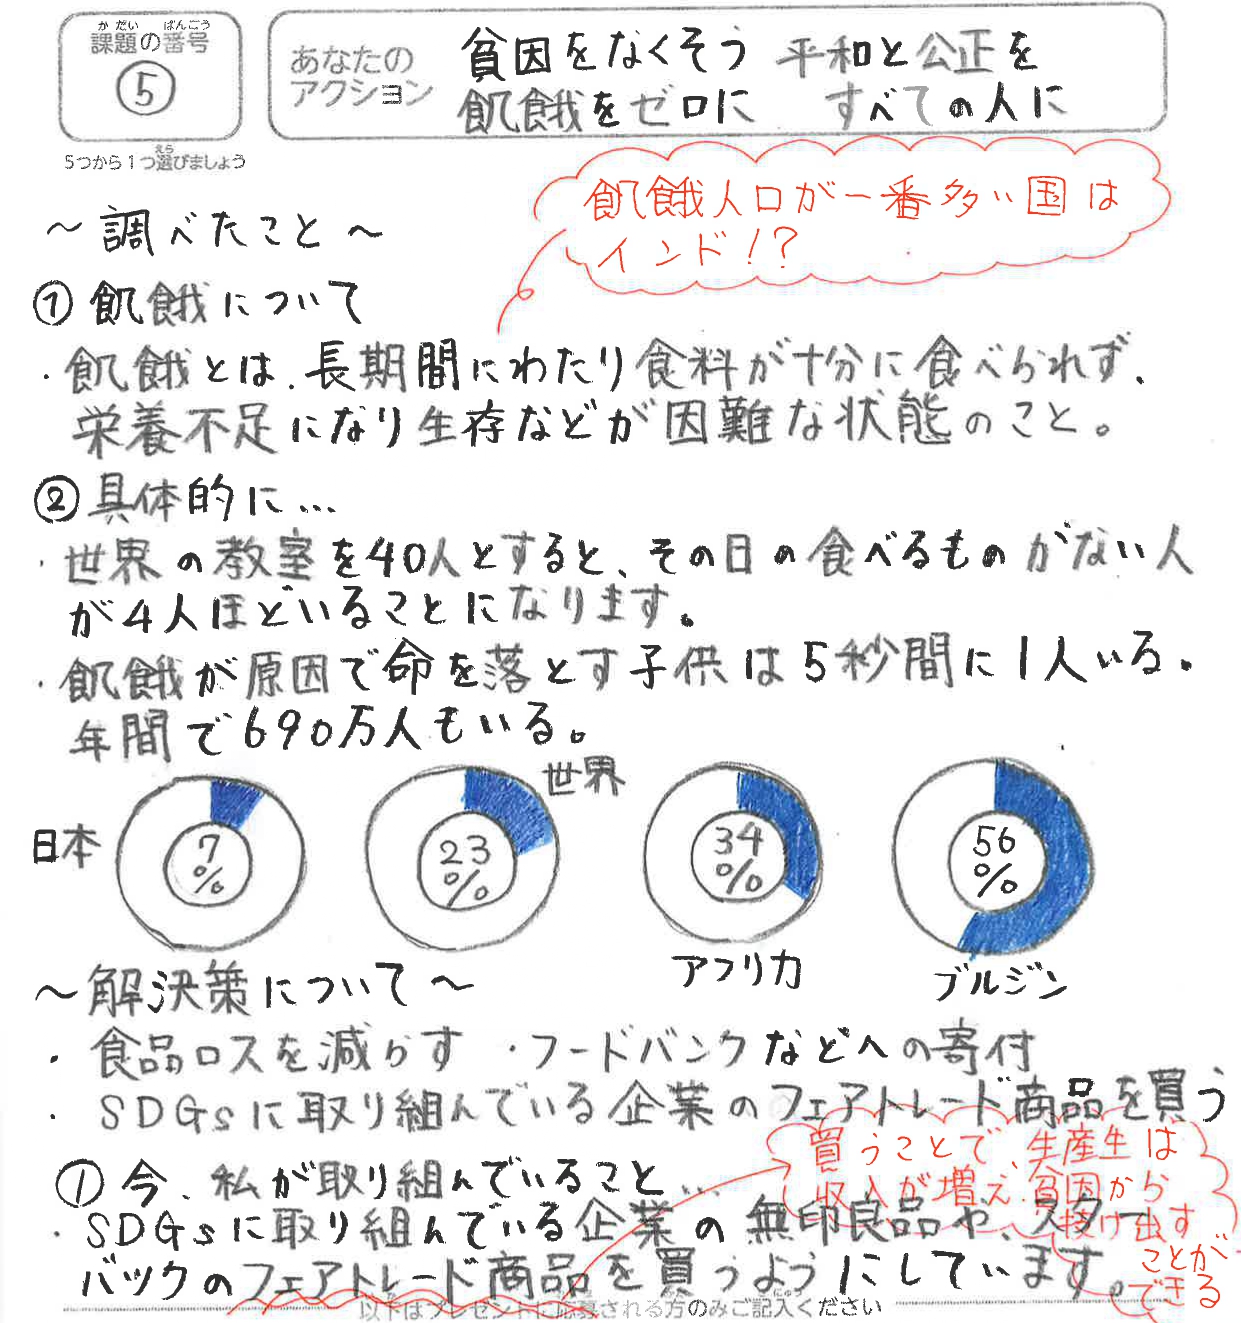 かだい ばんごう
課題の番号
5
えら
5つから1つ選びましょう
あなたの
アクション
貧因をなくそう 平和と公正を
飢餓をゼロに すべての人に
飢餓人口が一番多い国は
インド!?
～調べたこと～
① 飢餓について
・飢餓とは、長期間にわたり食料が十分に食べられず、
栄養不足になり生存などが困難な状態のこと。
② 具体的に…
・世界の教室を40人とすると、その日の食べるものがない人
が4人ほどいることになります。
・飢餓が原因で命を落とす子供は5秒間に1人いる。
年間で690万人もいる。
日本
7
%
世界
23
%
34
%
アフリカ
56
%
ブルジン
～解決策について～
・食品ロスを減らす ・フードバンクなどへの寄付
・SDGsに取り組んでいる企業のフェアトレード商品を買う
買うことで、生産生は
収入が増え、貧困から
抜け出す
ことが
できる
① 今、私が取り組んでいること…
・SDGsに取り組んでいる企業の無印良品や、スター
バックのフェアトレード商品を買うようにしています。
以下はプレゼントに応募される方のみご記入ください